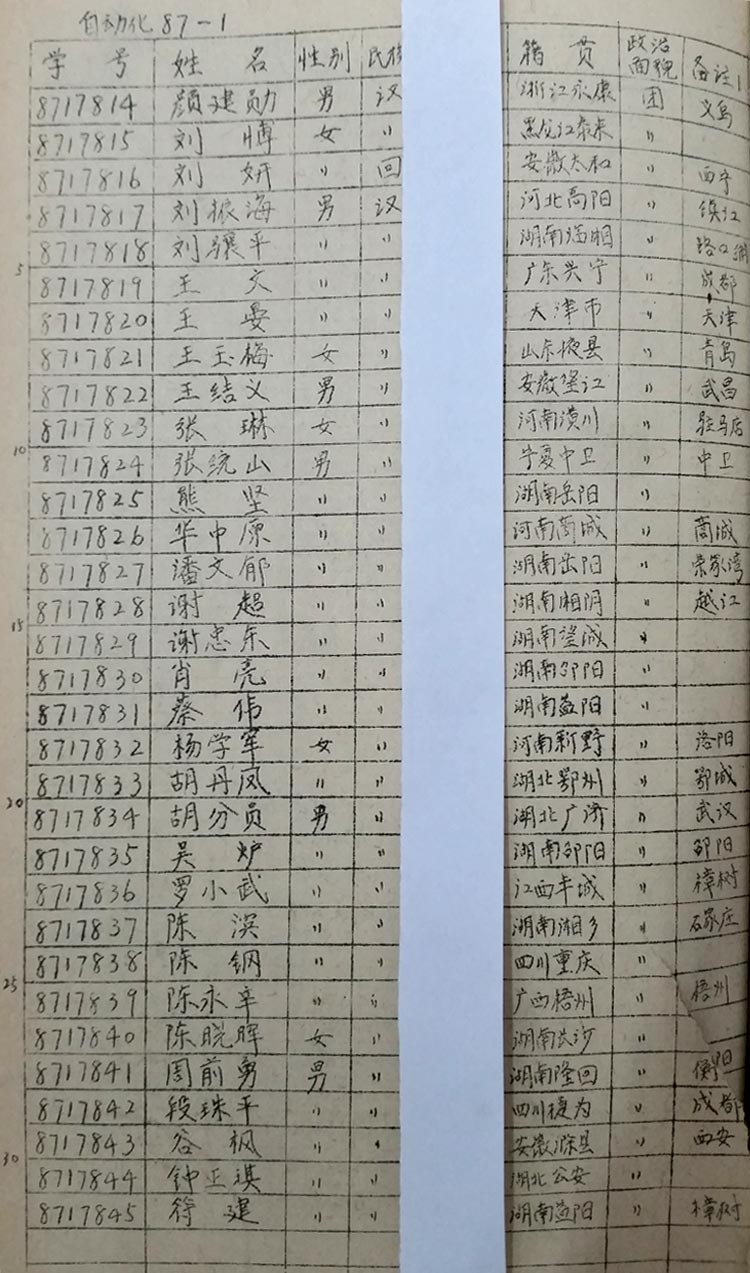 自动化87-1
学号 姓名 性别 民族 籍贯 政治面貌 备注
8717814 颜建勋 男 汉 浙江永康 团 义乌
8717815 刘博 女 〃 黑龙江泰来 〃
8717816 刘妍 〃 回 安徽太和 〃 西宁
8717817 刘振海 男 汉 河北高阳 〃 镇江
5 8717818 刘骥平 〃 〃 湖南临湘 〃 路口铺
8717819 王文 〃 〃 广东兴宁 〃 成都
8717820 王晏 〃 〃 天津市 〃 天津
8717821 王玉梅 女 〃 山东掖县 〃 青岛
8717822 王结义 男 〃 安徽 〃 武昌
10 8717823 张琳 女 〃 河南潢川 〃 驻马店
8717824 张统山 男 〃 宁夏中卫 〃 中卫
8717825 熊坚 〃 〃 湖南岳阳 〃
8717826 华中原 〃 〃 河南商城 〃 商城
8717827 潘文郁 〃 〃 湖南岳阳 〃 荣家湾
15 8717828 谢超 〃 〃 湖南湘阴 〃 越江
8717829 谢忠东 〃 〃 湖南望城 〃
8717830 肖亮 〃 〃 湖南邵阳 〃
8717831 蔡伟 〃 〃 湖南益阳 〃
8717832 杨学军 女 〃 河南新野 〃 洛阳
20 8717833 胡丹凤 〃 〃 湖北鄂州 〃 鄂城
8717834 胡分员 男 〃 湖北广济 〃 武汉
8717835 吴炉 〃 〃 湖南邵阳 〃 邵阳
8717836 罗小武 〃 〃 江西丰城 〃 樟树
8717837 陈滨 〃 〃 湖南湘乡 〃 石家庄
25 8717838 陈钢 〃 〃 四川重庆 〃
8717839 陈永辛 〃 〃 广西梧州 〃 梧州
8717840 陈晓晖 女 〃 湖南长沙 〃
8717841 周前勇 男 〃 湖南隆回 〃 衡阳
8717842 段珠平 〃 〃 四川犍为 〃 成都
30 8717843 谷枫 〃 〃 安徽滁县 〃 西安
8717844 钟正淇 〃 〃 湖北公安 〃
8717845 符建 〃 〃 湖南益阳 〃 樟树